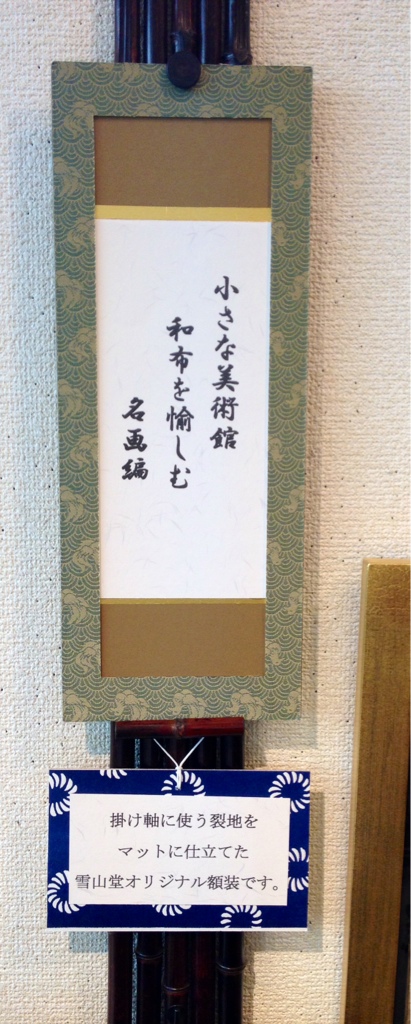 小さな美術館
和布を愉しむ
名画編
掛け軸に使う裂地を
マットに仕立てた
雪山堂オリジナル額装です。